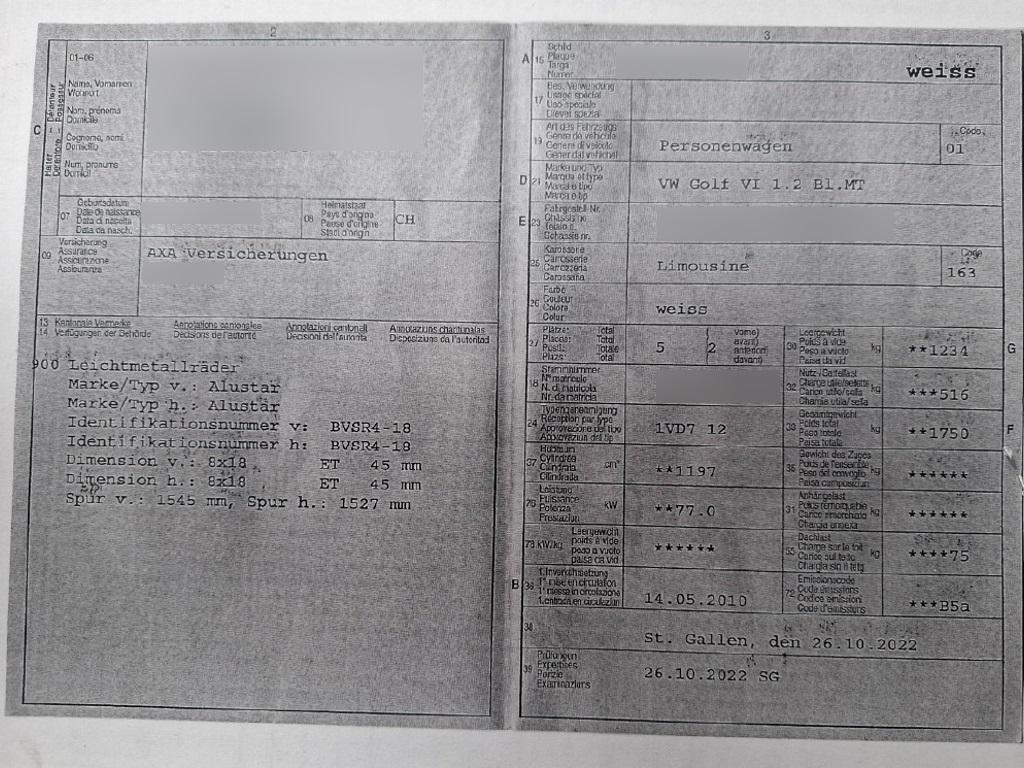 2
01-06
Name, Vornamen
Wohnort
Nom, prénoms
Domicile
Cognome, nomi
Domicilio
Num, pronums
Domicil
C
Halter
Détenteur
Detentore
Possessur
07
Geburtsdatum
Date de naissance
Data di nascita
Data da nasch.
08
Heimatstaat
Pays d'origine
Paese d'origine
Stadi d'origin
CH
09
Versicherung
Assurance
Assicurazione
Assicuranza
AXA Versicherungen
13 Kantonale Vermerke
14 Verfügungen der Behörde
Annotations cantonales
Décisions de l'autorité
Annotazioni cantonali
Decisioni dell'autorità
Annotaziuns chantunalas
Disposiziuns da l'autoritad
900 Leichtmetallräder
Marke/Typ v.: Alustar
Marke/Typ h.: Alustar
Identifikationsnummer v: BVSR4-18
Identifikationsnummer h: BVSR4-18
Dimension v.: 8x18 ET 45 mm
Dimension h.: 8x18 ET 45 mm
Spur v.: 1545 mm, Spur h.: 1527 mm
3
A 15
Schild
Plaque
Targa
Numer
weiss
17
Bes. Verwendung
Usage spécial
Uso speciale
Diever spezial
19
Art des Fahrzeugs
Genre de véhicule
Genere di veicolo
Gener dal vehichel
Personenwagen
Code
01
D 21
Marke und Typ
Marque et type
Marca e tipo
Marca e tip
VW Golf VI 1.2 Bl.MT
E 23
Fahrgestell Nr.
Châssis no
Telaio n.
Schassis nr.
25
Karosserie
Carrosserie
Carrozzeria
Carossaria
Limousine
Code
163
26
Farbe
Couleur
Colore
Colur
weiss
27
Plätze: Total
Places: Total
Posti: Totale
Plazs: Total
5
2
vorne)
avant)
anteriori)
davant)
30
Leergewicht
Poids à vide
Peso a vuoto
Paisa da vid
kg
**1234
G
18
Stammnummer
N° matricule
Nr. di matricola
Nr. da matricla
32
Nutz-/Sattellast
Charge utile/sellette
Carico utile/sella
Chargia utila/sella
kg
***516
24
Typengenehmigung
Réception par type
Approvazione del tipo
Approvaziun dal tip
1VD7 12
33
Gesamtgewicht
Poids total
Peso totale
Paisa totala
kg
**1750
F
37
Hubraum
Cylindrée
Cilindrata
Cilindrada
cm³
**1197
35
Gewicht des Zuges
Poids de l'ensemble
Peso del convoglio
Paisa cumposiziun
kg
******
76
Leistung
Puissance
Potenza
Prestaziun
kW
**77.0
31
Anhängelast
Poids remorquable
Carico rimorchiato
Chargia annexa
kg
******
78 kW/kg
Leergewicht
poids à vide
peso a vuoto
paisa da vid
******
55
Dachlast
Charge sur le toit
Carico sul tetto
Chargia sin il tetg
kg
****75
B 36
1. Inverkehrsetzung
1re mise en circulation
1a messa in circolazione
1. entrada en circulaziun
14.05.2010
72
Emissionscode
Code émissions
Codice emissioni
Code d'emissiuns
***B5a
38
St. Gallen, den 26.10.2022
39
Prüfungen
Expertises
Perizie
Examinaziuns
26.10.2022 SG